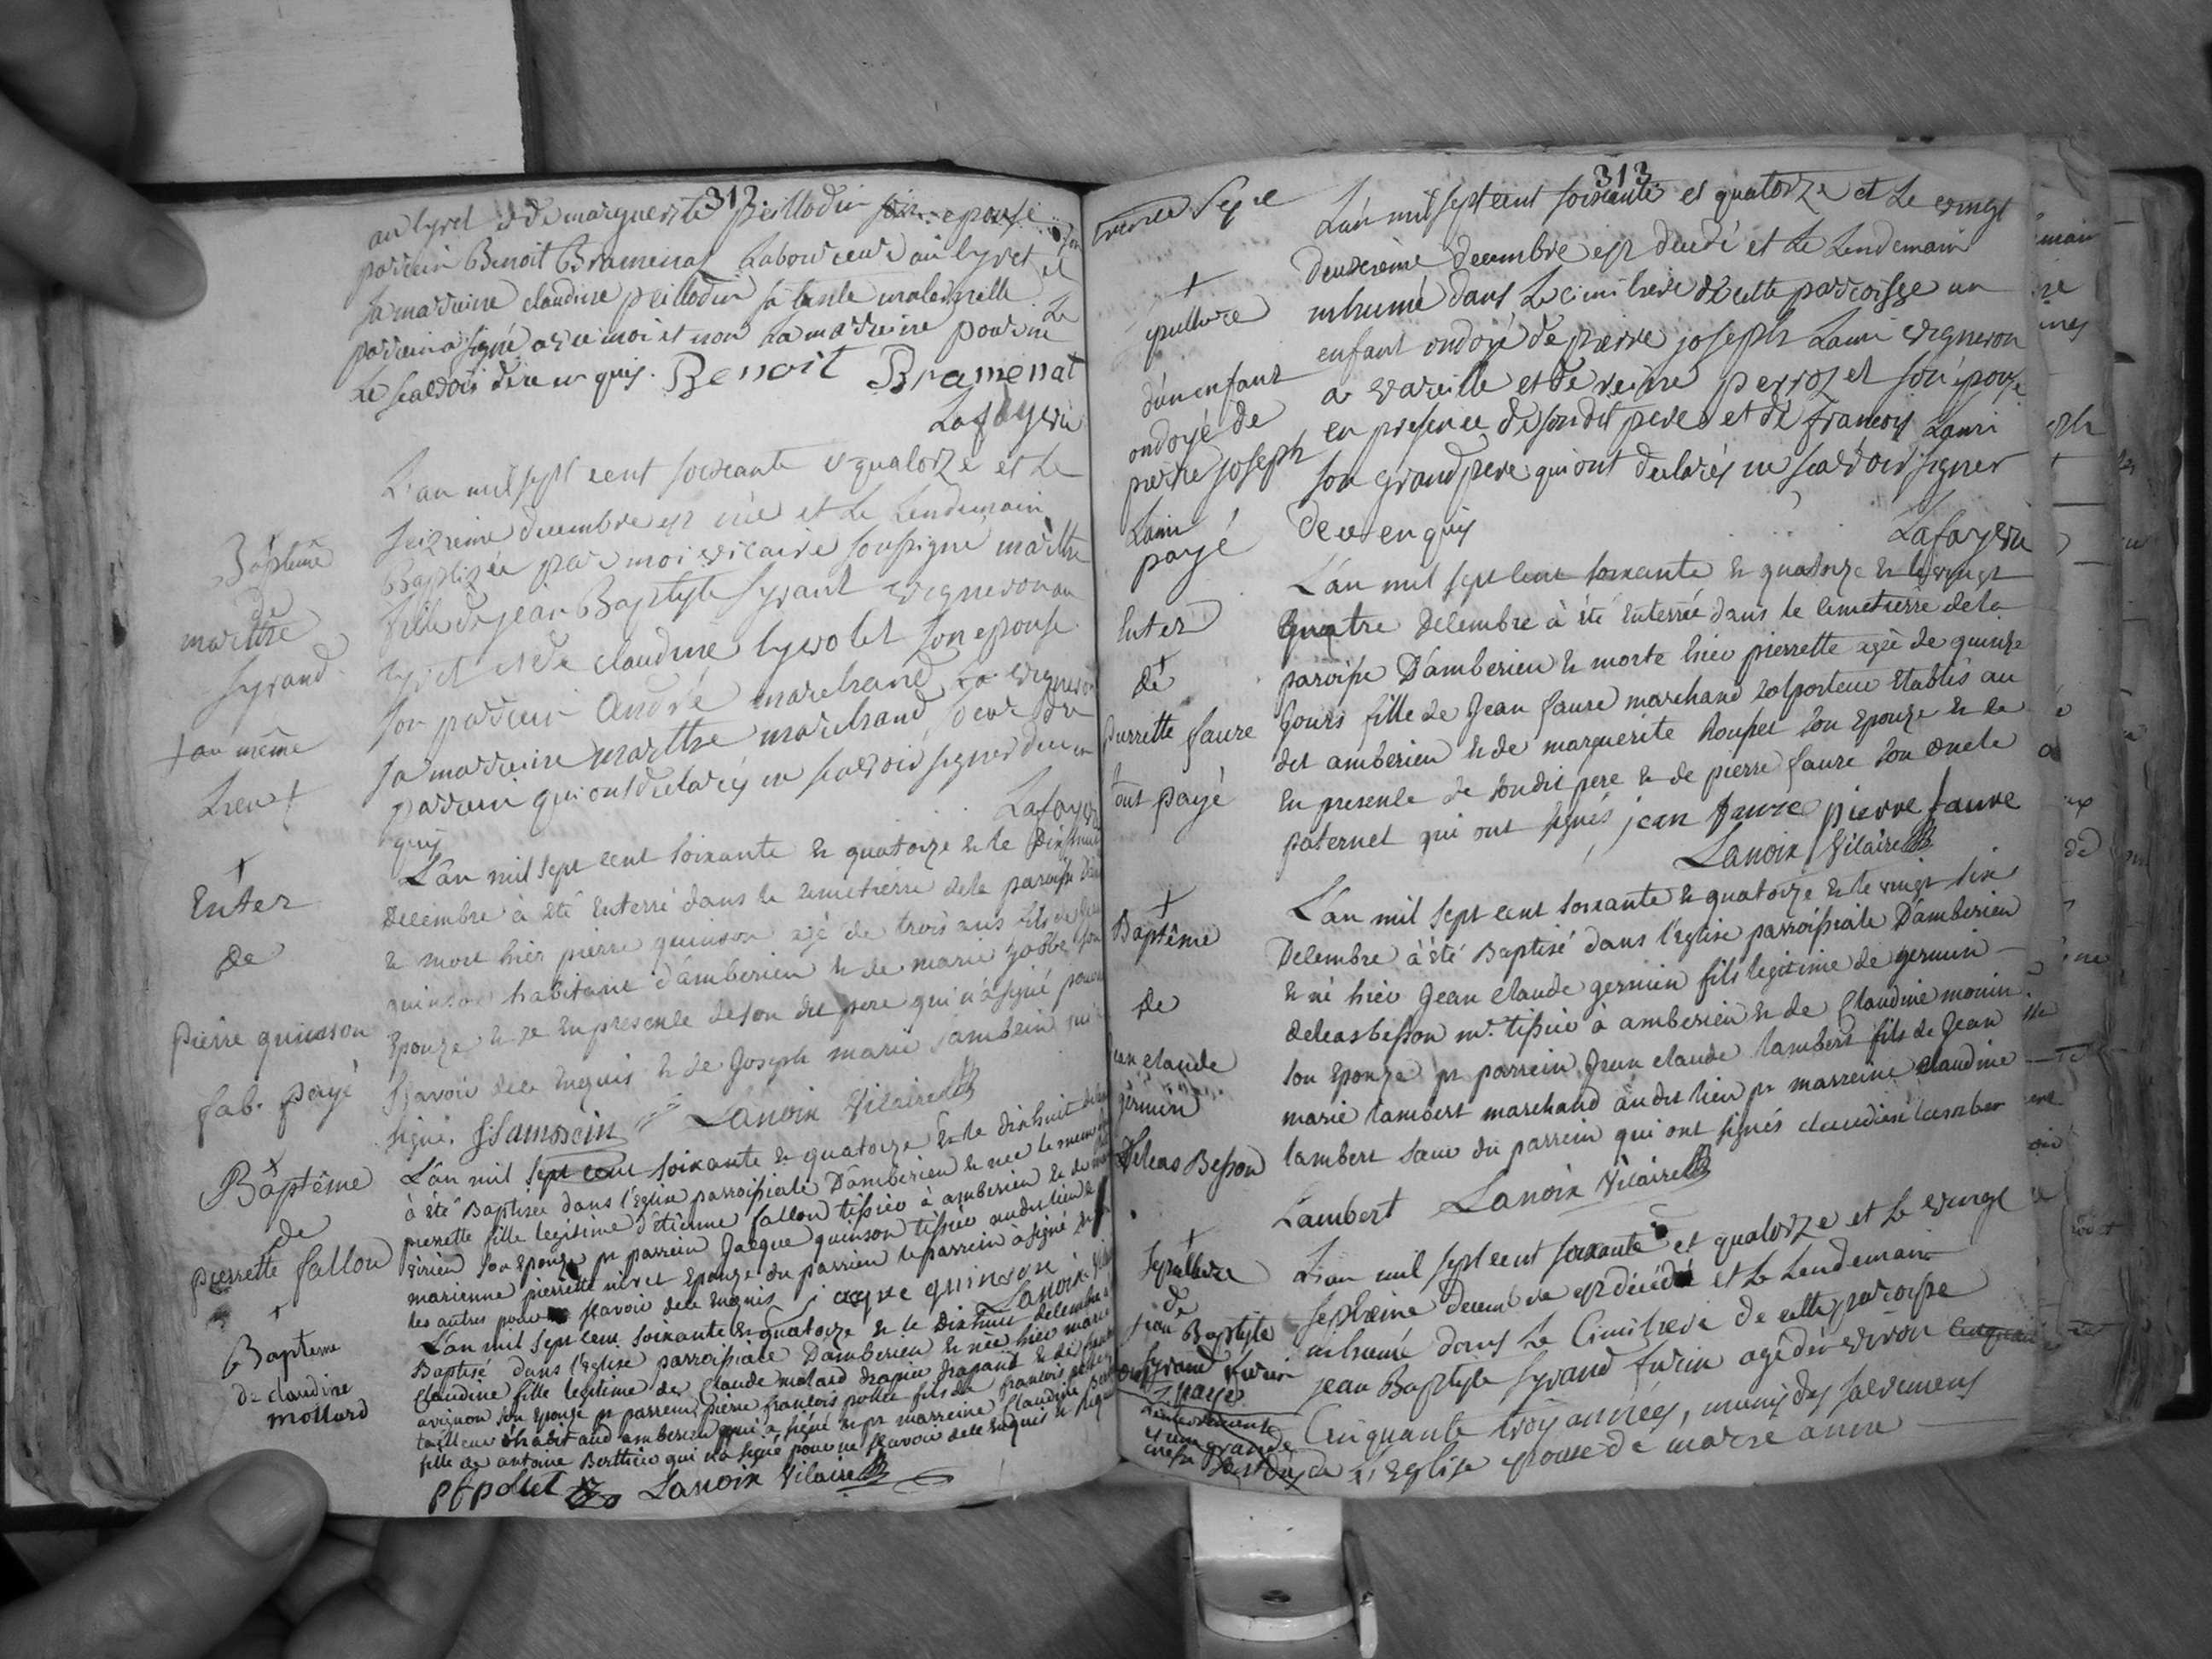 312
au tyret et de marguerite peillodin son epouse son
parrein Benoit Bramenat Laboureur au tyret et
sa marreine claudine peillodin sa tante maternelle. Le
parrein a signé avec moi et non la marreine pour ne
le scavoir de ce enquis. Benoit Bramenat
Lafayevie
Baptême
de
marthe
syrand
+ au même
Lieu +
L'an mil sept cent soixante et quatorze et le
seizieme decembre est née et le Lendemain
Baptizée par moi vicaire soussigné marthe
fille de jean Baptyste syrant vigneron au
tyret et de claudine tyvolet son epouse
son parrein André marchand vigneron
sa marreine marthe marchand soeur du
parrein qui ont declarés ne scavoir signer de ce en
quis
Enter
de
pierre quinson
fab. payé
L'an mil sept cent soixante & quatorze & le Dix huit
Decembre à été Enterré dans le cimetierre de la paroisse
& mort hier pierre quinson agé de trois ans fils de
quinson habitant d'amberieu & de marie
Epouze & ce En presence de son dit pere qui n'a signé pour
scavoir de ce Enquis & de Joseph marie sambein
signé. JSamboin Lanoix Vicaire
Baptême
de
pierrette fallon
L'an mil sept cent soixante & quatorze & le dixhuit
à été Baptisée dans l'Eglise parroissiale D'amberieu & née le meme
pierrette fille legitime d'étienne fallon tissier à amberieu & de
son Epouze pr parrein Jacque quinson tissier audit lieu &
marienne pierrette Epouze du parrein le parrein à signé
les autres pour ne scavoir de ce Enquis Jacque quinson
Lanoix
Baptême
de claudine
mollard
L'an mil sept cent soixante & quatorze & le Dixhuit decembre
Baptisé dans l'eglise parroissiale D'amberieu & née hier
Claudine fille legitime de Claude molard
avignon son Epouze pr parrein pierre françois pollet fils de françois
tailleur habitant amberieu qui a signé & pr marreine Claudine
fille de antoine Berthier qui n'a signé pour ne scavoir de ce Enquis &
pfpollet Lanoix Vicaire
313
épulture
d'un enfant
ondoyé de
pierre joseph
Lami
payé
L'an mil sept cent soixante et quatorze et le vingt
deuxieme decembre est decedé et le Lendemain
inhumé dans Le cimitiere de cette parroisse un
enfant ondoyé de pierre joseph Lami vigneron
a vareille et de reine perrozet son épouse
en presence de son dit pere et de francois Lami
son grand pere qui ont declarés ne scavoir signer
de ce enquis
Lafayevie
Enter
de
pierrette faure
tout payé
L'an mil sept cent soixante & quatorze & le vingt
quatre Decembre à été Enterrée dans le cimetierre de la
paroisse D'amberieu & morte hier pierrette agée de quinze
jours fille de Jean faure marchand colporteur Etablis au
dit amberieu & de marguerite houpet son Epouze & ce
En presence de son dit pere & de pierre faure son oncle
paternel qui ont signés jean faure pierre faure
Lanoix Vicaire
Baptême
de
jean claude
germin
deleas Besson
L'an mil sept cent soixante & quatorze & le vingt six
Decembre à été Baptisé dans l'eglise parroissiale D'amberieu
& né hier Jean claude germin fils legitime de germin
deleas besson mr. tissier à amberieu & de Claudine monin
son Epouze pr parrein Jean claude lambert fils de Jean
marie lambert marchand audit lieu pr marreine claudine
lambert soeur du parrein qui ont signés claudine lamber
Lambert Lanoix Vicaire
Sepulture
de
jean Baptyste
syrand
payé
L'an mil sept cent soixante et quatorze et Le vingt
septieme decembre est décédé et Le Lendemain
inhumé dans Le Cimitiere de cette paroisse
jean Baptyste syrand agé d'environ
Cinquante trois années, munis des sacremens
de L'Eglise epoux de marie anne